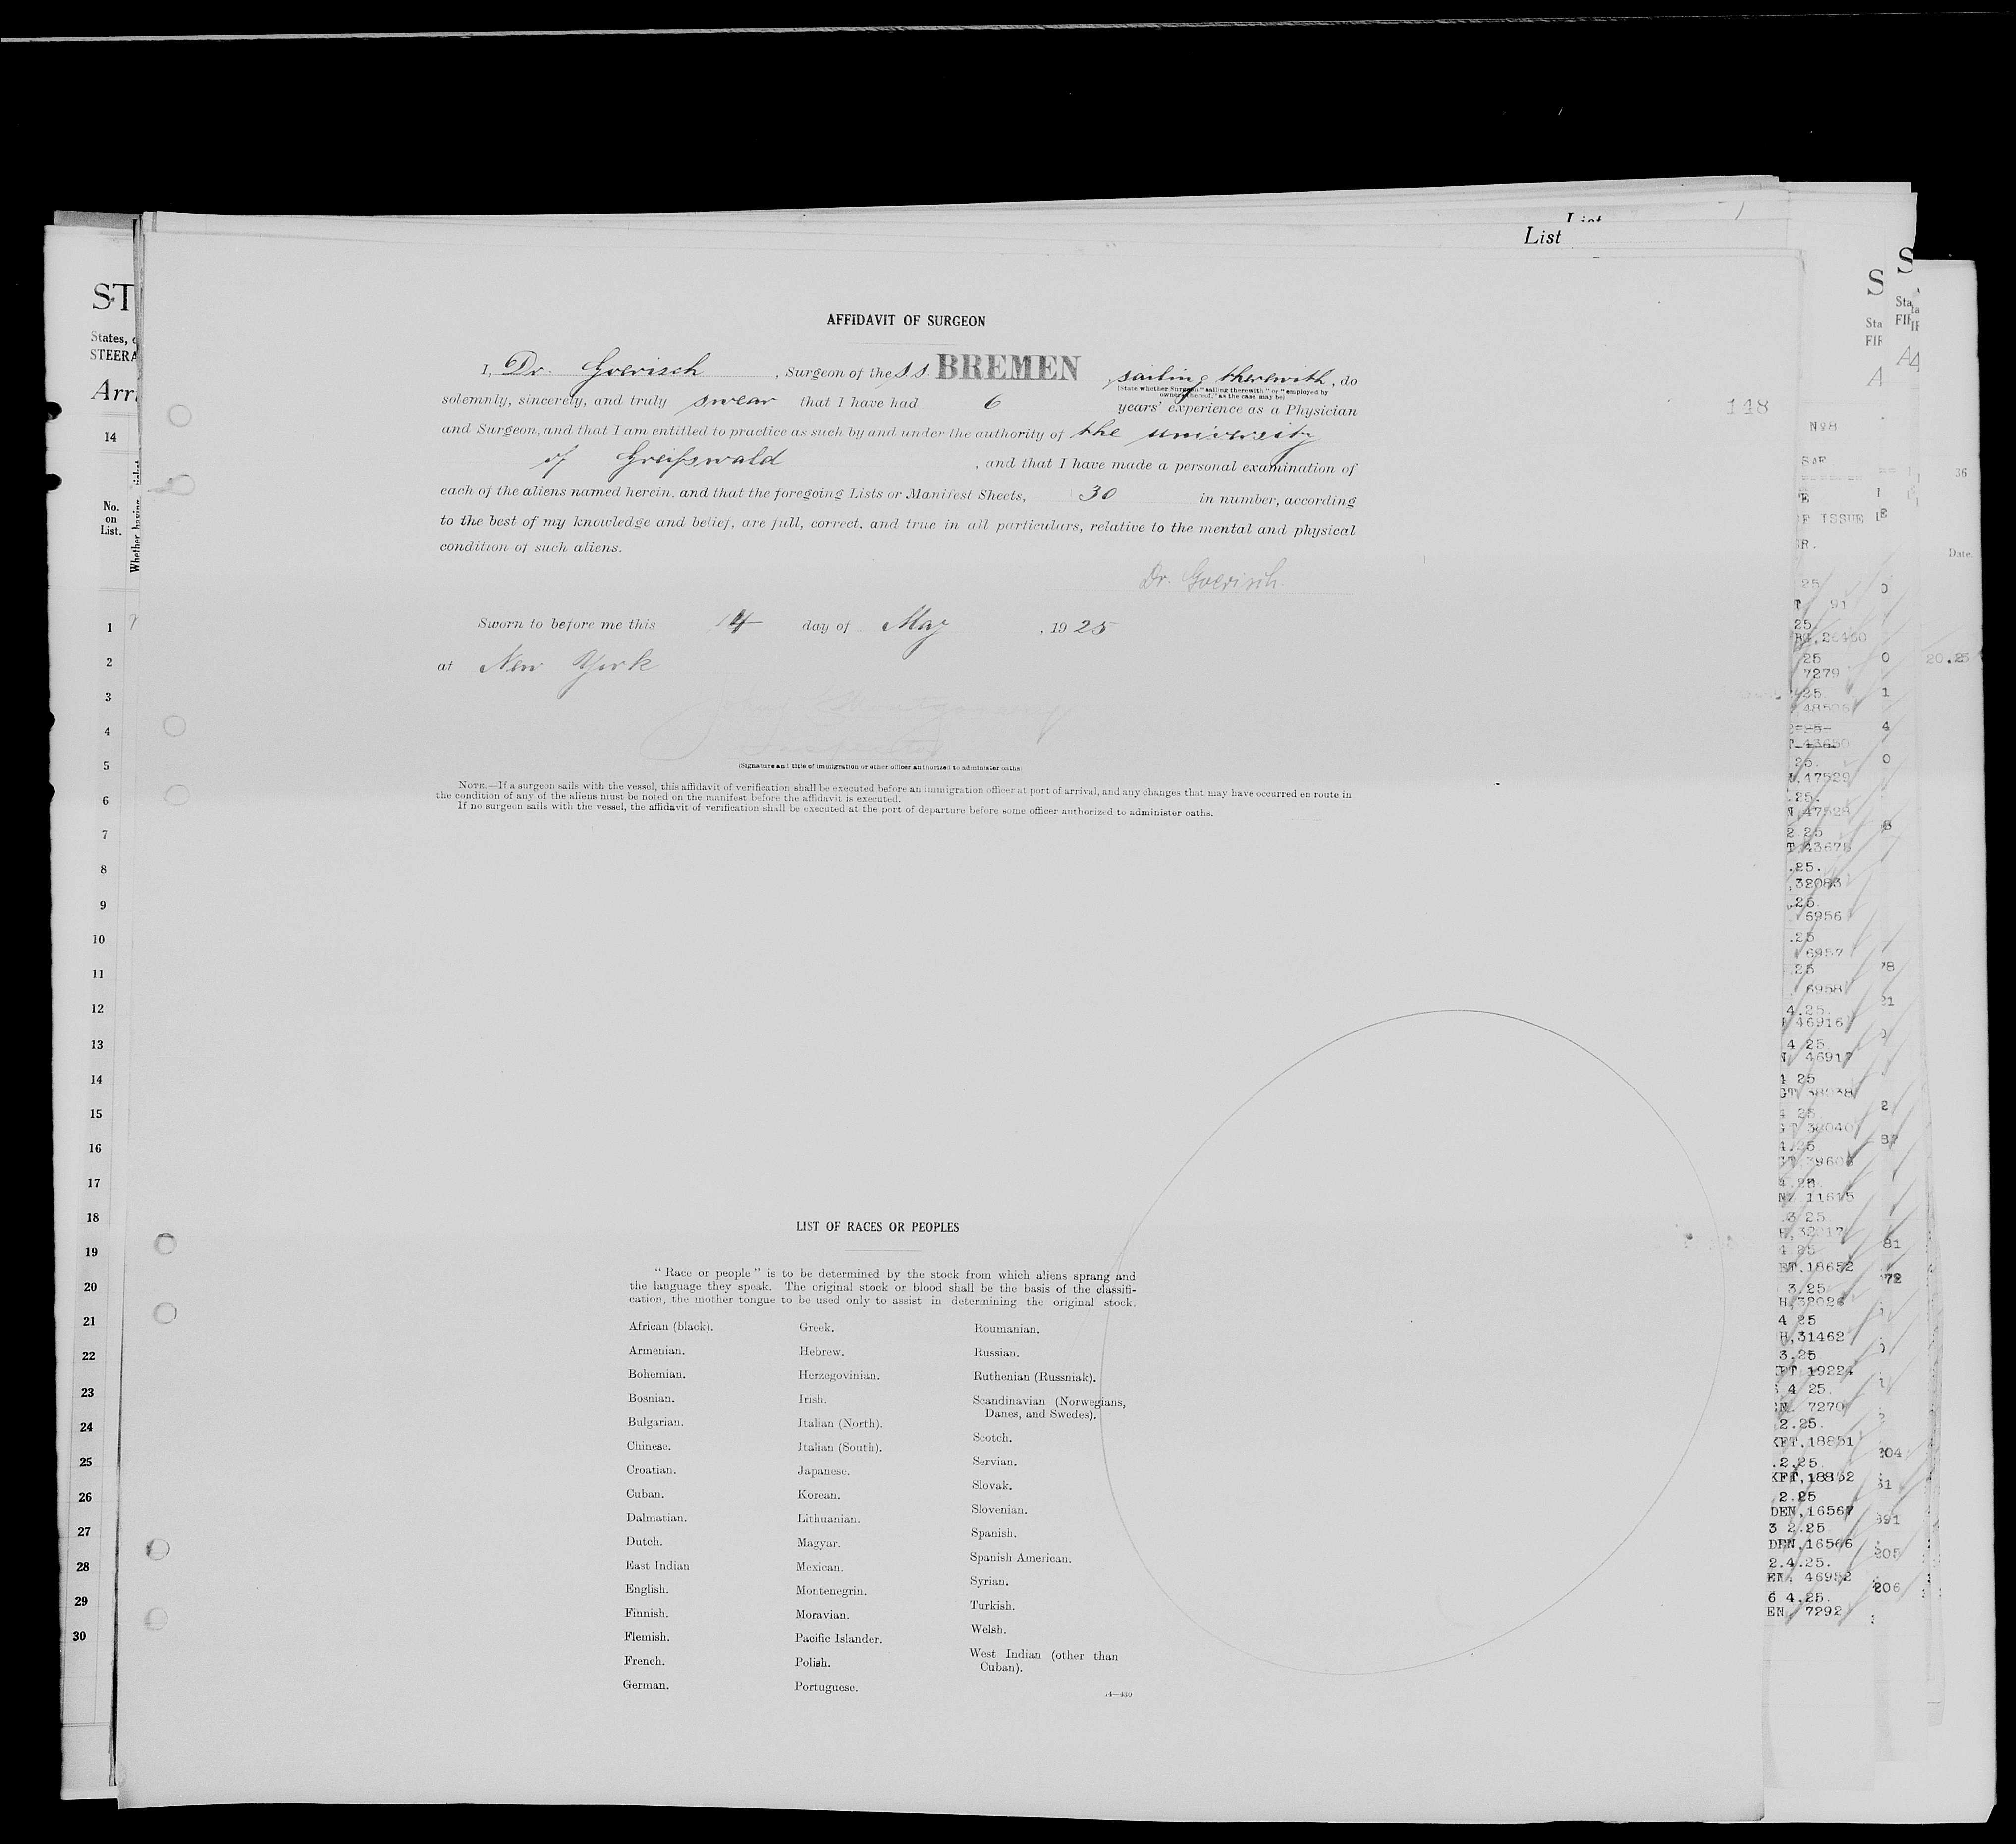 List
List
AFFIDAVIT OF SURGEON
I, Dr. Goerisch, Surgeon of the S.S. BREMEN sailing therewith, do
(State whether Surgeon "sailing therewith" or "employed by
owners thereof," as the case may be)
solemnly, sincerely, and truly swear that I have had 6 years' experience as a Physician
and Surgeon, and that I am entitled to practice as such by and under the authority of the university
of Greifswald, and that I have made a personal examination of
each of the aliens named herein, and that the foregoing Lists or Manifest Sheets, 30 in number, according
to the best of my knowledge and belief, are full, correct, and true in all particulars, relative to the mental and physical
condition of such aliens.
Dr. Goerisch.
Sworn to before me this 14 day of May, 1925
at New York
Montgomery
Inspector
(Signature and title of immigration or other officer authorized to administer oaths)
NOTE.—If a surgeon sails with the vessel, this affidavit of verification shall be executed before an immigration officer at port of arrival, and any changes that may have occurred en route in
the condition of any of the aliens must be noted on the manifest before the affidavit is executed.
If no surgeon sails with the vessel, the affidavit of verification shall be executed at the port of departure before some officer authorized to administer oaths.
148
LIST OF RACES OR PEOPLES
"Race or people" is to be determined by the stock from which aliens sprang and
the language they speak. The original stock or blood shall be the basis of the classifi-
cation, the mother tongue to be used only to assist in determining the original stock.
African (black).
Armenian.
Bohemian.
Bosnian.
Bulgarian.
Chinese.
Croatian.
Cuban.
Dalmatian.
Dutch.
East Indian
English.
Finnish.
Flemish.
French.
German.
Greek.
Hebrew.
Herzegovinian.
Irish.
Italian (North).
Italian (South).
Japanese.
Korean.
Lithuanian.
Magyar.
Mexican.
Montenegrin.
Moravian.
Pacific Islander.
Polish.
Portuguese.
Roumanian.
Russian.
Ruthenian (Russniak).
Scandinavian (Norwegians,
Danes, and Swedes).
Scotch.
Servian.
Slovak.
Slovenian.
Spanish.
Spanish American.
Syrian.
Turkish.
Welsh.
West Indian (other than
Cuban).
A—430
ST
States,
STEERA
Arr
14
No.
on
List.
Whether having
1
2
3
4
5
6
7
8
9
10
11
12
13
14
15
16
17
18
19
20
21
22
23
24
25
26
27
28
29
30
36
Date.